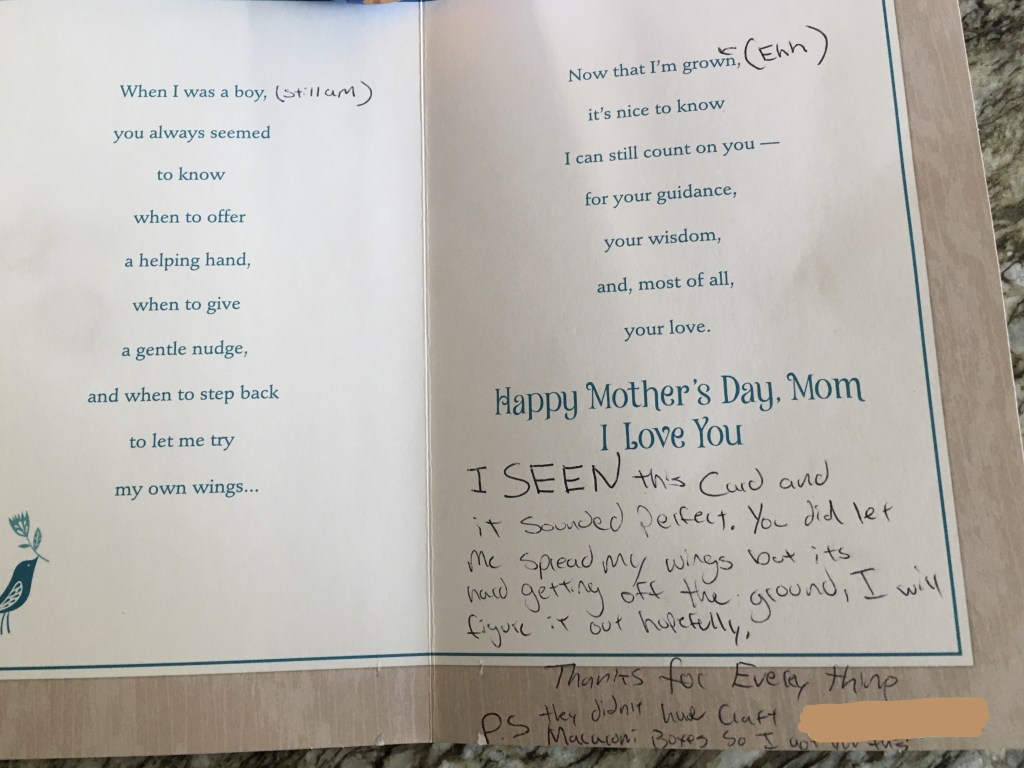 When I was a boy, (still am)
you always seemed
to know
when to offer
a helping hand,
when to give
a gentle nudge,
and when to step back
to let me try
my own wings...
Now that I'm grown, (Ehh)
it's nice to know
I can still count on you —
for your guidance,
your wisdom,
and, most of all,
your love.
Happy Mother's Day, Mom
I Love You
I SEEN this Card and
it sounded perfect. You did let
me spread my wings but its
hard getting off the ground, I will
figure it out hopefully.
Thanks for Every thing
P.S they didnt have Craft
Macaroni Boxes So I got you this